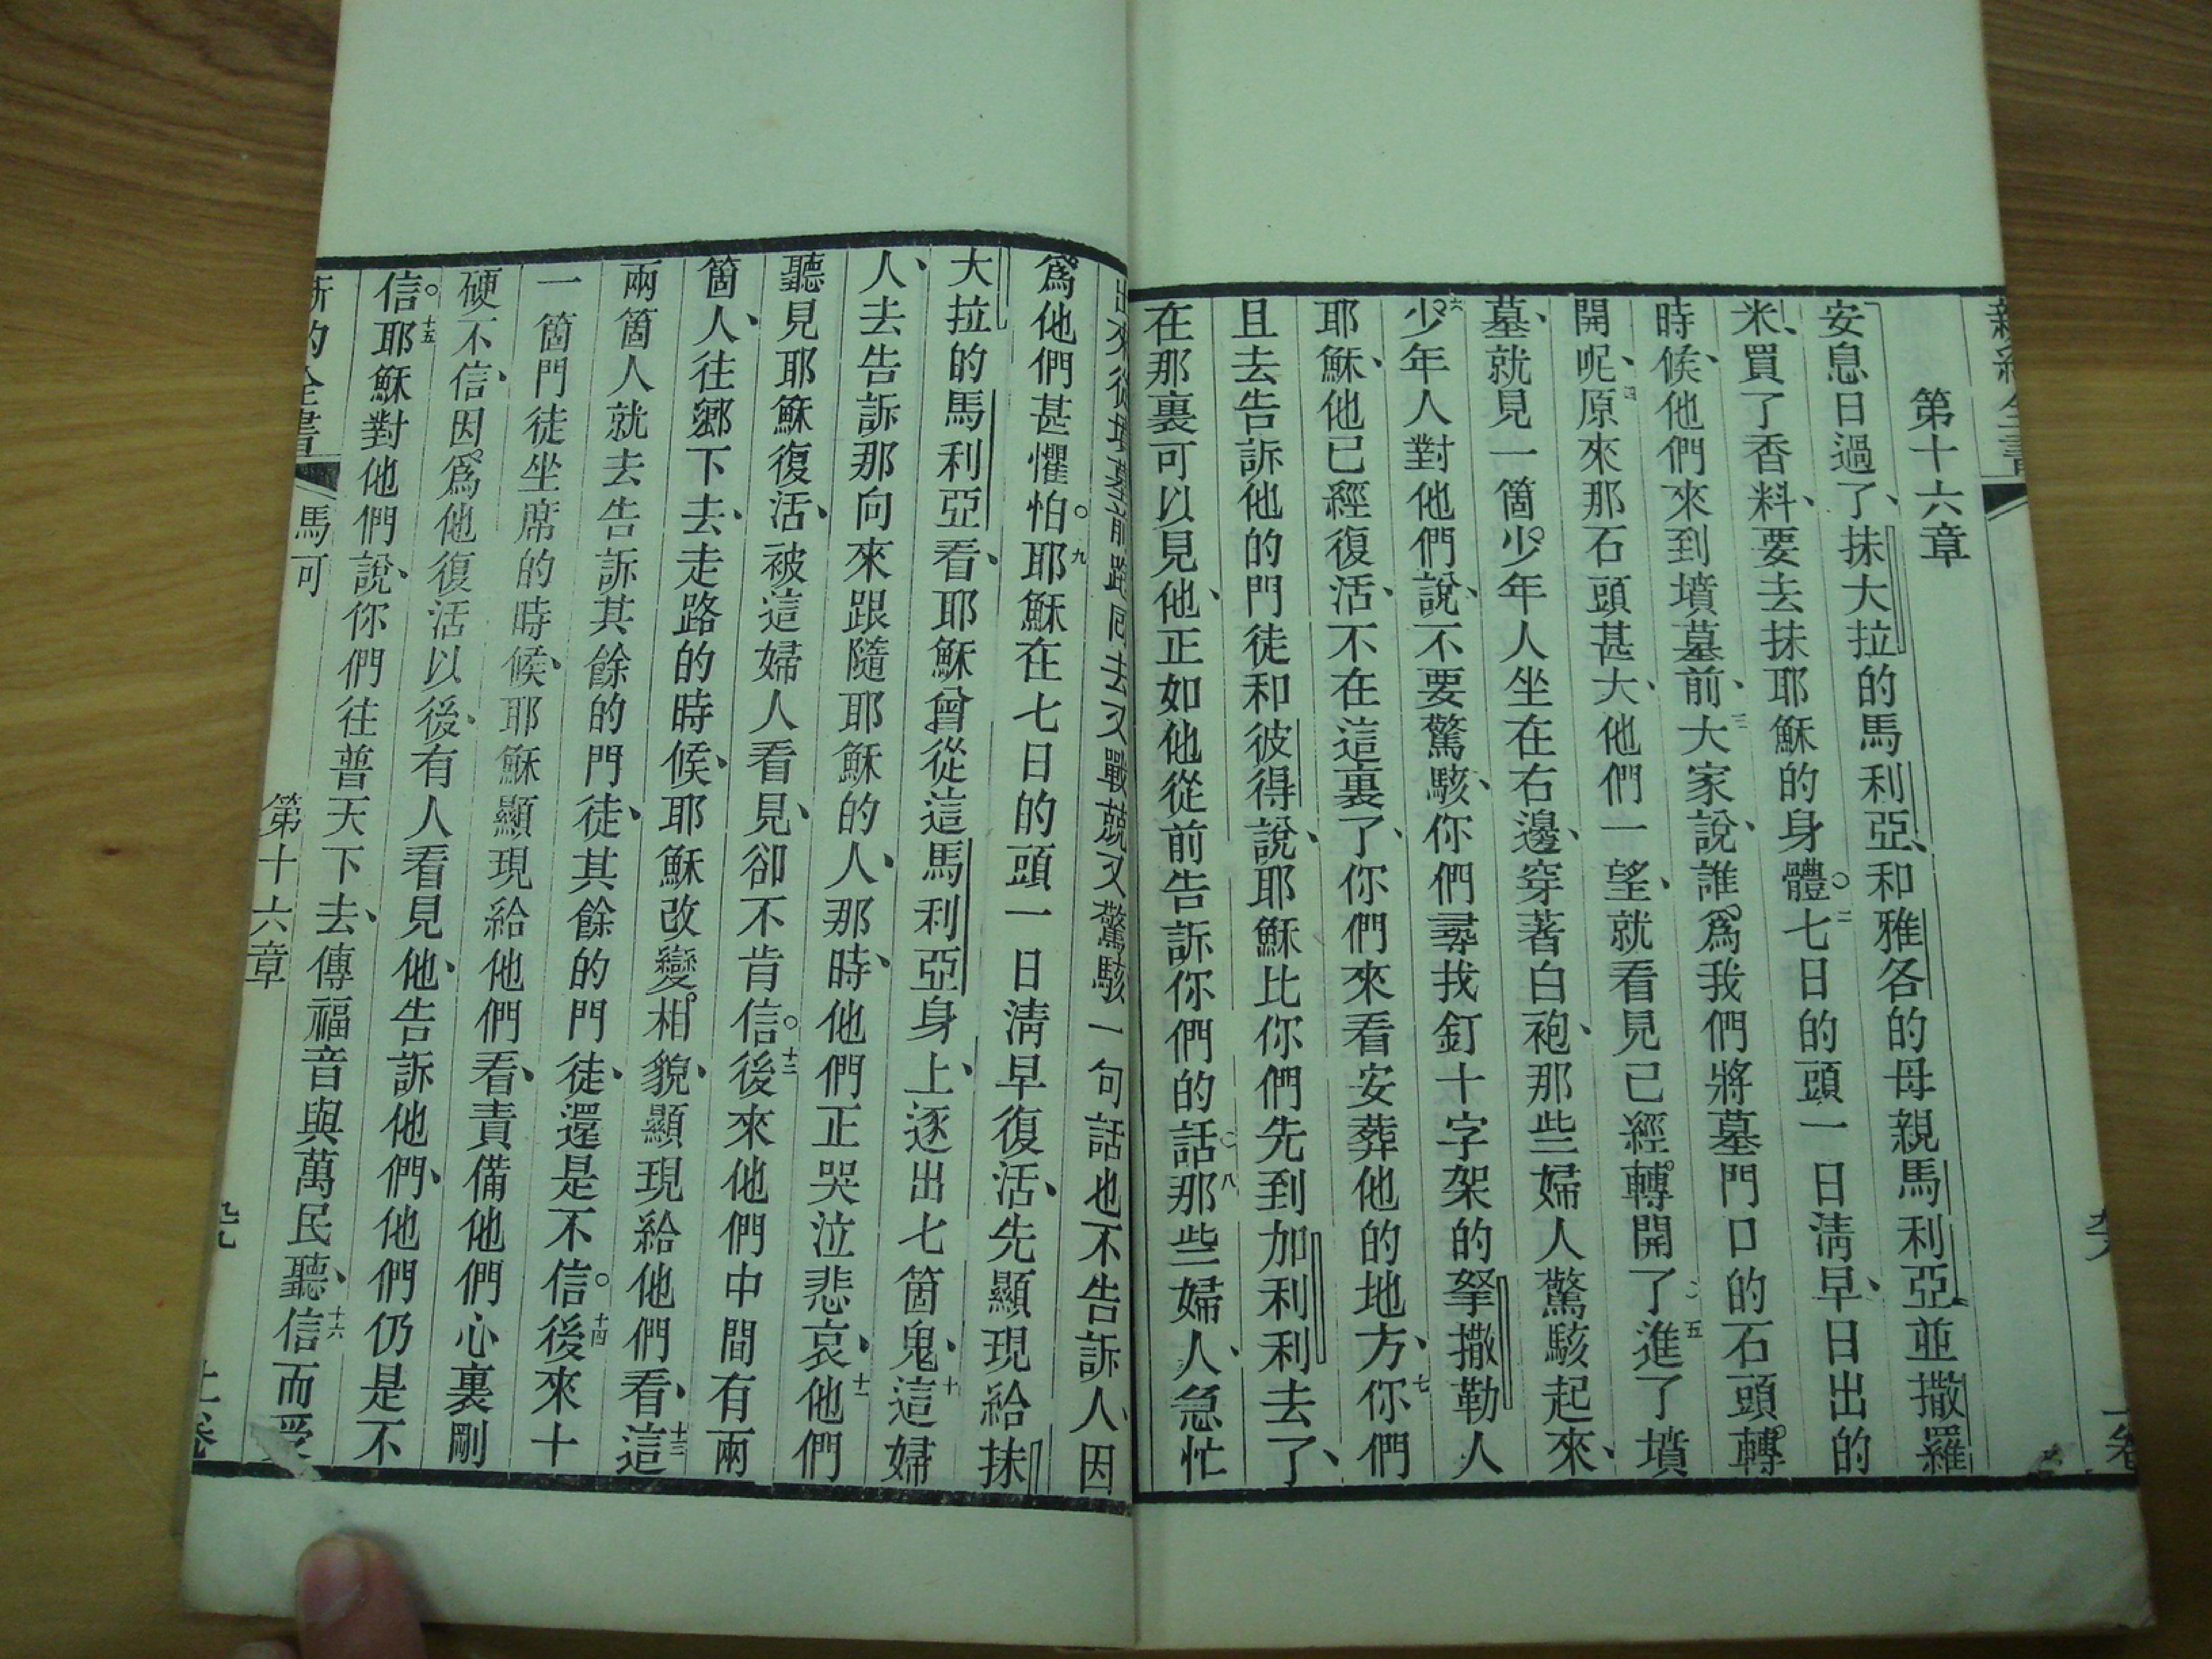 第十六章
安息日過了、抹大拉的馬利亞、和雅各的母親馬利亞、並撒羅
米、買了香料、要去抹耶穌的身體。二七日的頭一日淸早、日出的
時候、他們來到墳墓前、三大家說、誰爲我們將墓門口的石頭轉
開呢、四原來那石頭甚大、他們一望、就看見已經轉開了。五進了墳
墓、就見一箇少年人坐在右邊、穿著白袍、那些婦人驚駭起來、
六少年人對他們說、不要驚駭、你們尋找釘十字架的拏撒勒人
耶穌、他已經復活、不在這裏了、你們來看安葬他的地方、七你們
且去告訴他的門徒和彼得說、耶穌比你們先到加利利去了、
在那裏可以見他、正如他從前告訴你們的話。八那些婦人、急忙
出來從墳墓前跑回去又戰兢又驚駭一句話也不告訴人、因
爲他們甚懼怕。九耶穌在七日的頭一日淸早復活、先顯現給抹
大拉的馬利亞看、耶穌曾從這馬利亞身上、逐出七箇鬼、十這婦
人、去告訴那向來跟隨耶穌的人、那時、他們正哭泣悲哀、十一他們
聽見耶穌復活、被這婦人看見、卻不肯信。十二後來他們中間有兩
箇人、往鄉下去、走路的時候、耶穌改變相貌、顯現給他們看、十三這
兩箇人就去告訴其餘的門徒、其餘的門徒、還是不信。十四後來十
一箇門徒坐席的時候、耶穌顯現給他們看、責備他們心裏剛
硬不信、因爲他復活以後、有人看見他、告訴他們、他們仍是不
信。十五耶穌對他們說、你們往普天下去、傳福音與萬民聽、十六信而受
新約全書 馬可 第十六章